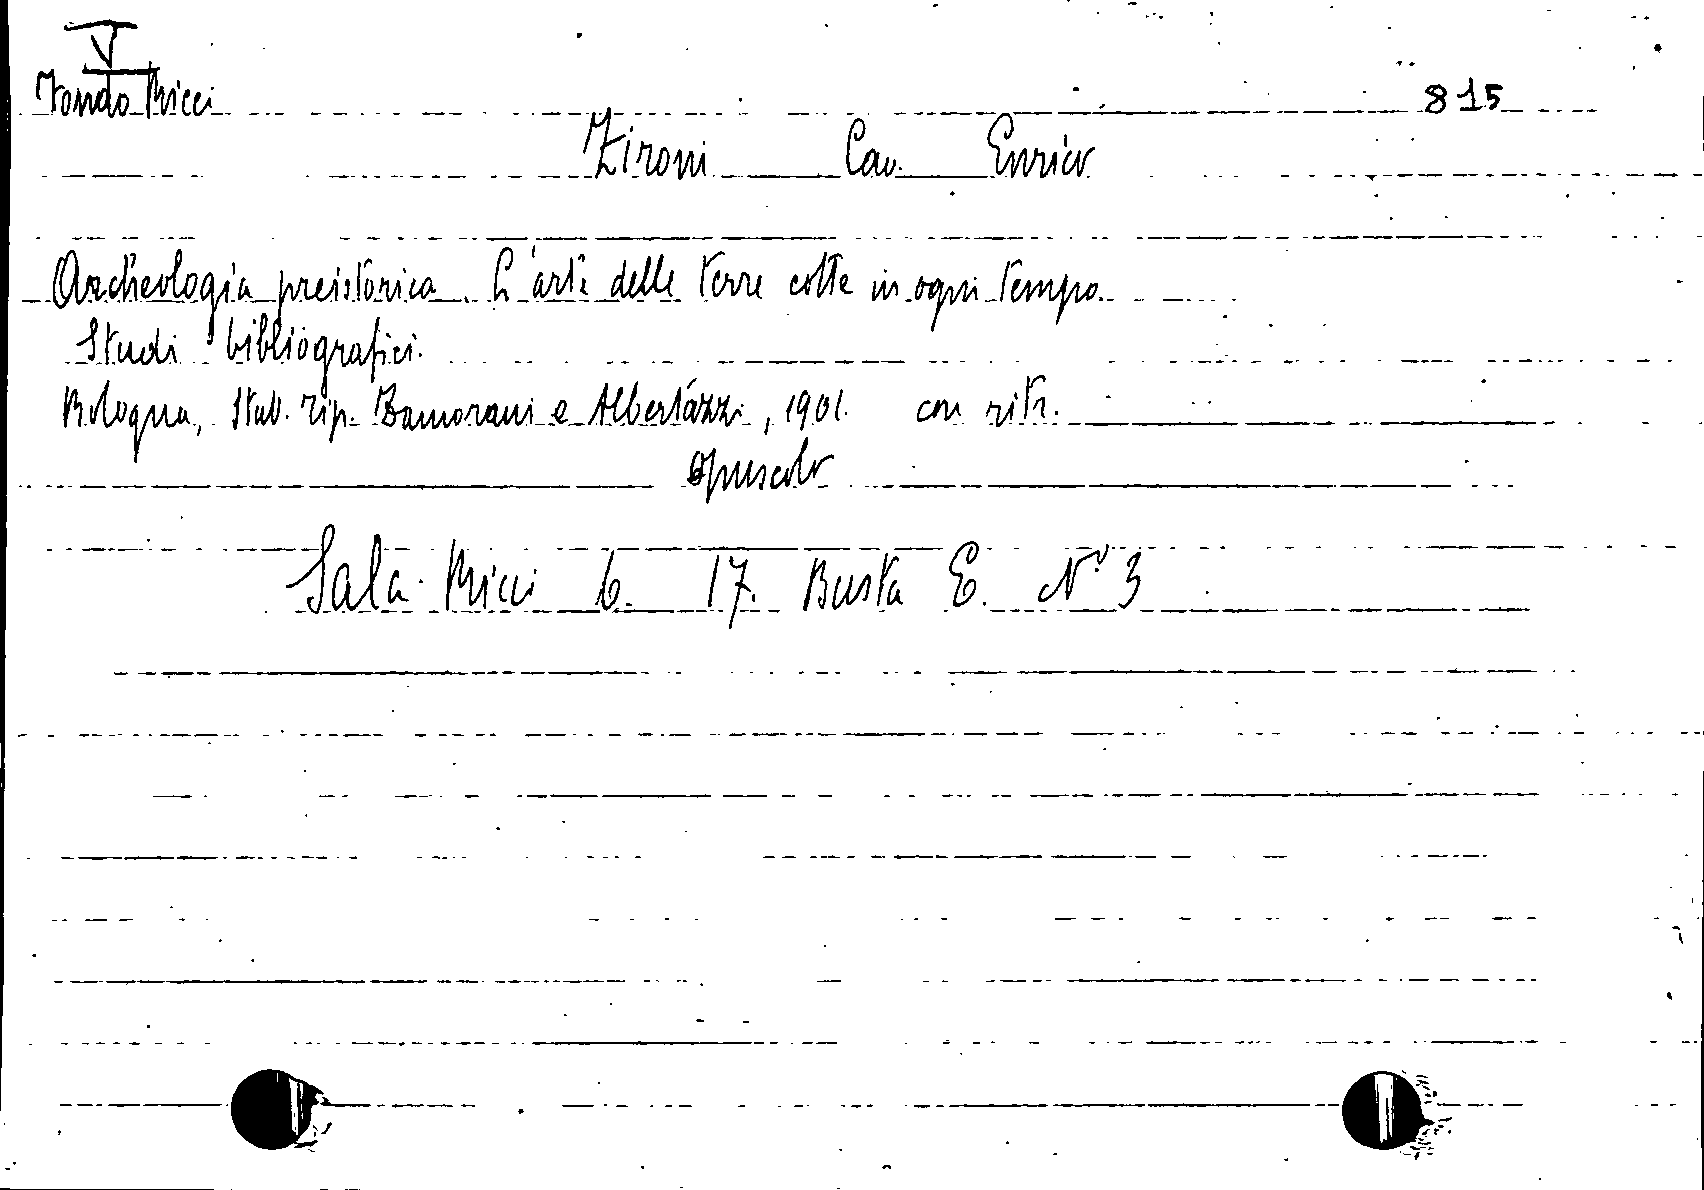 V
Fondo Ricci
815
Zironi Cav. Enrico
Archeologia preistorica. L'arte delle terre cotte in ogni tempo.
Studi bibliografici.
Bologna, Stab. Tip. Zamorani e Albertazzi, 1901. con ritr.
opuscolo
Sala Ricci 6. 17. Busta E. N° 3